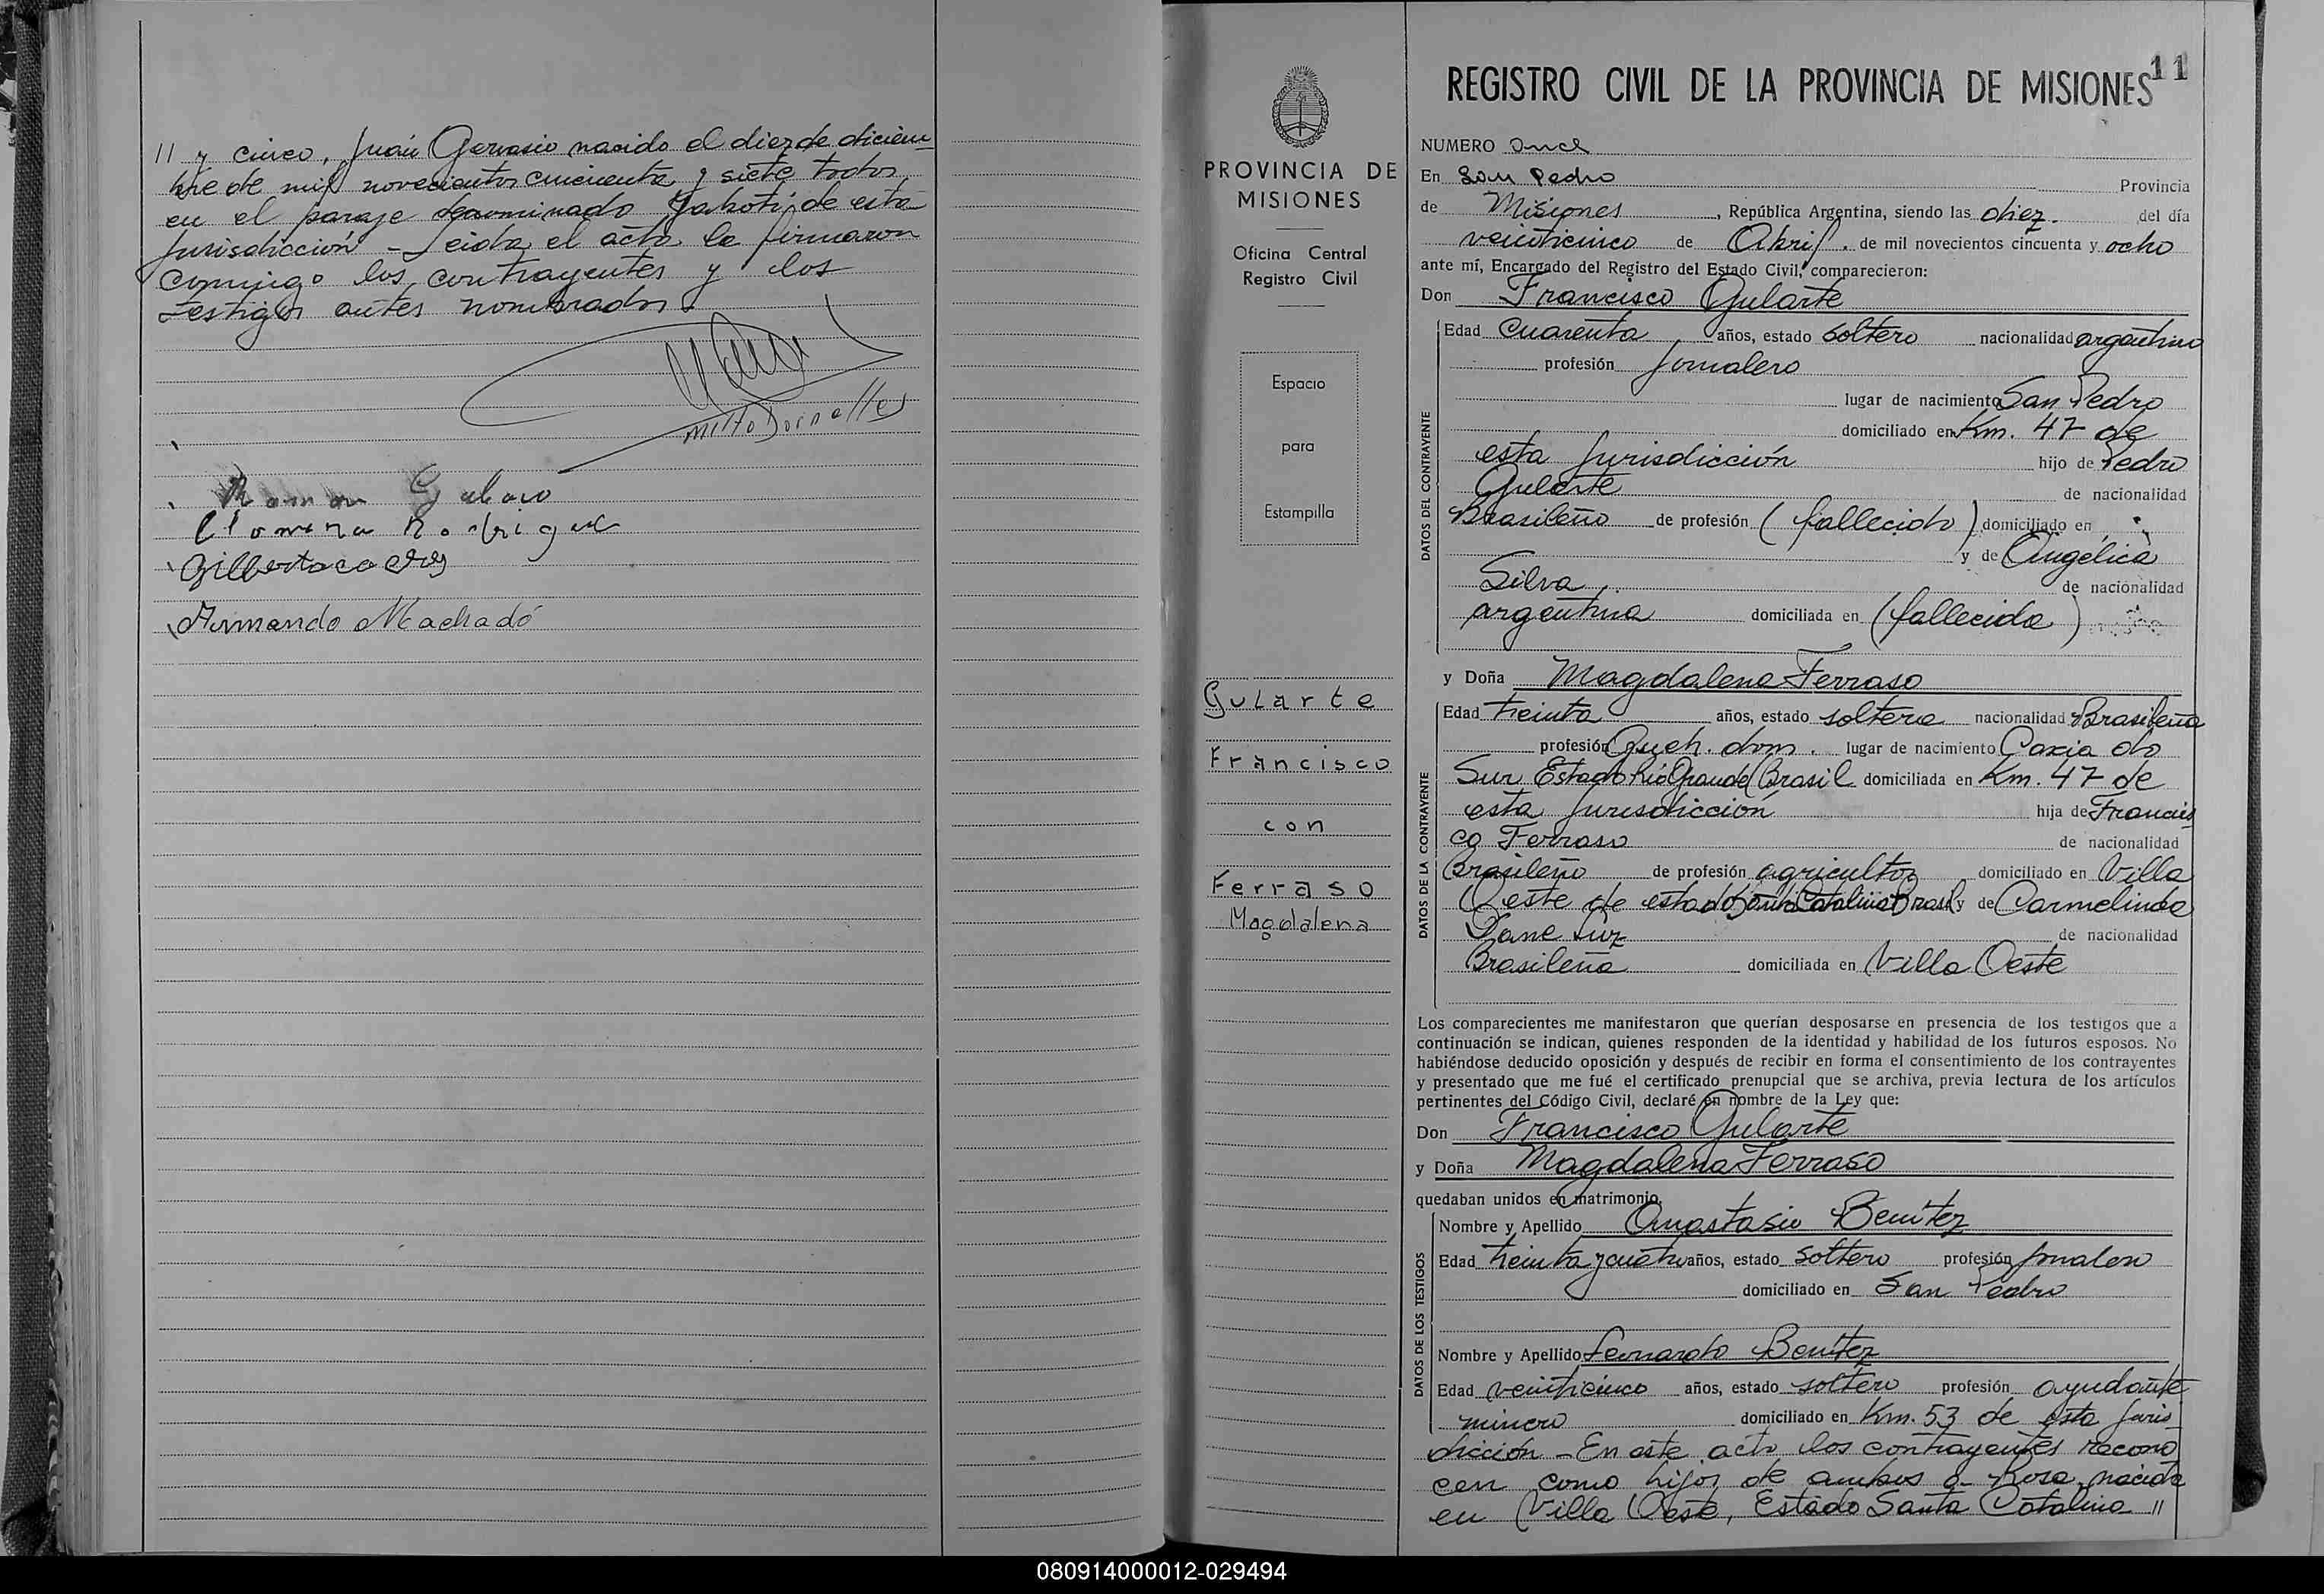 // y cinco, Juán Gervasio nacido el diez de diciem
bre de mil novecientos cincuenta y siete todos
en el paraje denominado Yabotí de esta
Jurisdicción - Leida el acta la firmaron
conmigo los contrayentes y los
testigos antes nombrados
Milto Dornelles
Ramon
Gilberto
Armando Machadó
PROVINCIA DE
MISIONES
Oficina Central
Registro Civil
Espacio
para
Estampilla
Gularte
Francisco
con
Ferraso
Magdalena
11
REGISTRO CIVIL DE LA PROVINCIA DE MISIONES
NUMERO Once
En San Pedro Provincia
de Misiones, República Argentina, siendo las diez del día
veinticinco de Abril de mil novecientos cincuenta y ocho
ante mí, Encargado del Registro del Estado Civil, comparecieron:
Don Francisco Gularte
DATOS DEL CONTRAYENTE
Edad Cuarenta años, estado soltero nacionalidad argentino
profesión Jornalero
lugar de nacimiento San Pedro
domiciliado en Km. 47 de
esta Jurisdicción hijo de Pedro
Gularte de nacionalidad
Brasileño de profesión (fallecido) domiciliado en
y de Angélica
Silva de nacionalidad
argentina domiciliada en (fallecida)
y Doña Magdalena Ferraso
DATOS DE LA CONTRAYENTE
Edad treinta años, estado soltera nacionalidad Brasileña
profesión Queh. dom. lugar de nacimiento Caxia do
Sur Estado Río Grande Brasil domiciliada en Km. 47 de
esta Jurisdicción hija de Francis
co Ferraso de nacionalidad
Brasileño de profesión agricultor domiciliado en Villa
Oeste de estado Santa Catalina Brasil y de Carmelinda
Dane Luz de nacionalidad
Brasileña domiciliada en Villa Oeste
Los comparecientes me manifestaron que querían desposarse en presencia de los testigos que a
continuación se indican, quienes responden de la identidad y habilidad de los futuros esposos. No
habiéndose deducido oposición y después de recibir en forma el consentimiento de los contrayentes
y presentado que me fué el certificado prenupcial que se archiva, previa lectura de los artículos
pertinentes del Código Civil, declaré en nombre de la Ley que:
Don Francisco Gularte
y Doña Magdalena Ferraso
quedaban unidos en matrimonio.
DATOS DE LOS TESTIGOS
Nombre y Apellido Anastasio Benítez
Edad treinta y cuatro años, estado soltero profesión Jornalero
domiciliado en San Pedro
Nombre y Apellido Leonardo Benítez
Edad veinticinco años, estado soltero profesión ayudante
minero domiciliado en Km. 53 de esta Juris
dicción - En este acto los contrayentes recono
cen como hijos de ambos a - Rosa, nacida
en Villa Oeste, Estado Santa Catalina //
080914000012-029494